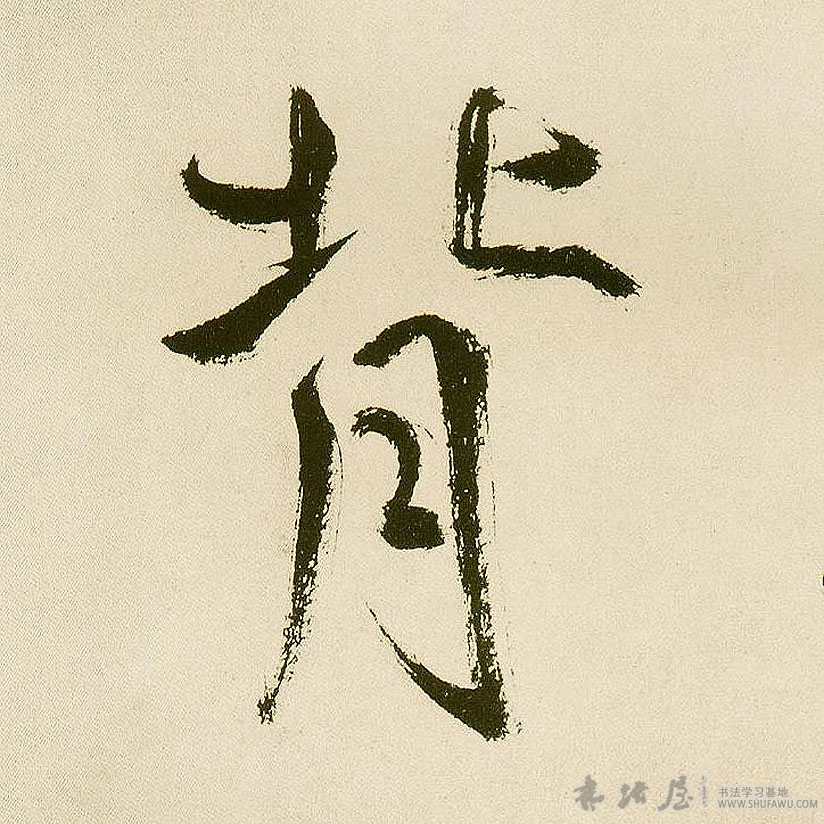 背
书法屋
书法学习基地
WWW.SHUFAWU.COM